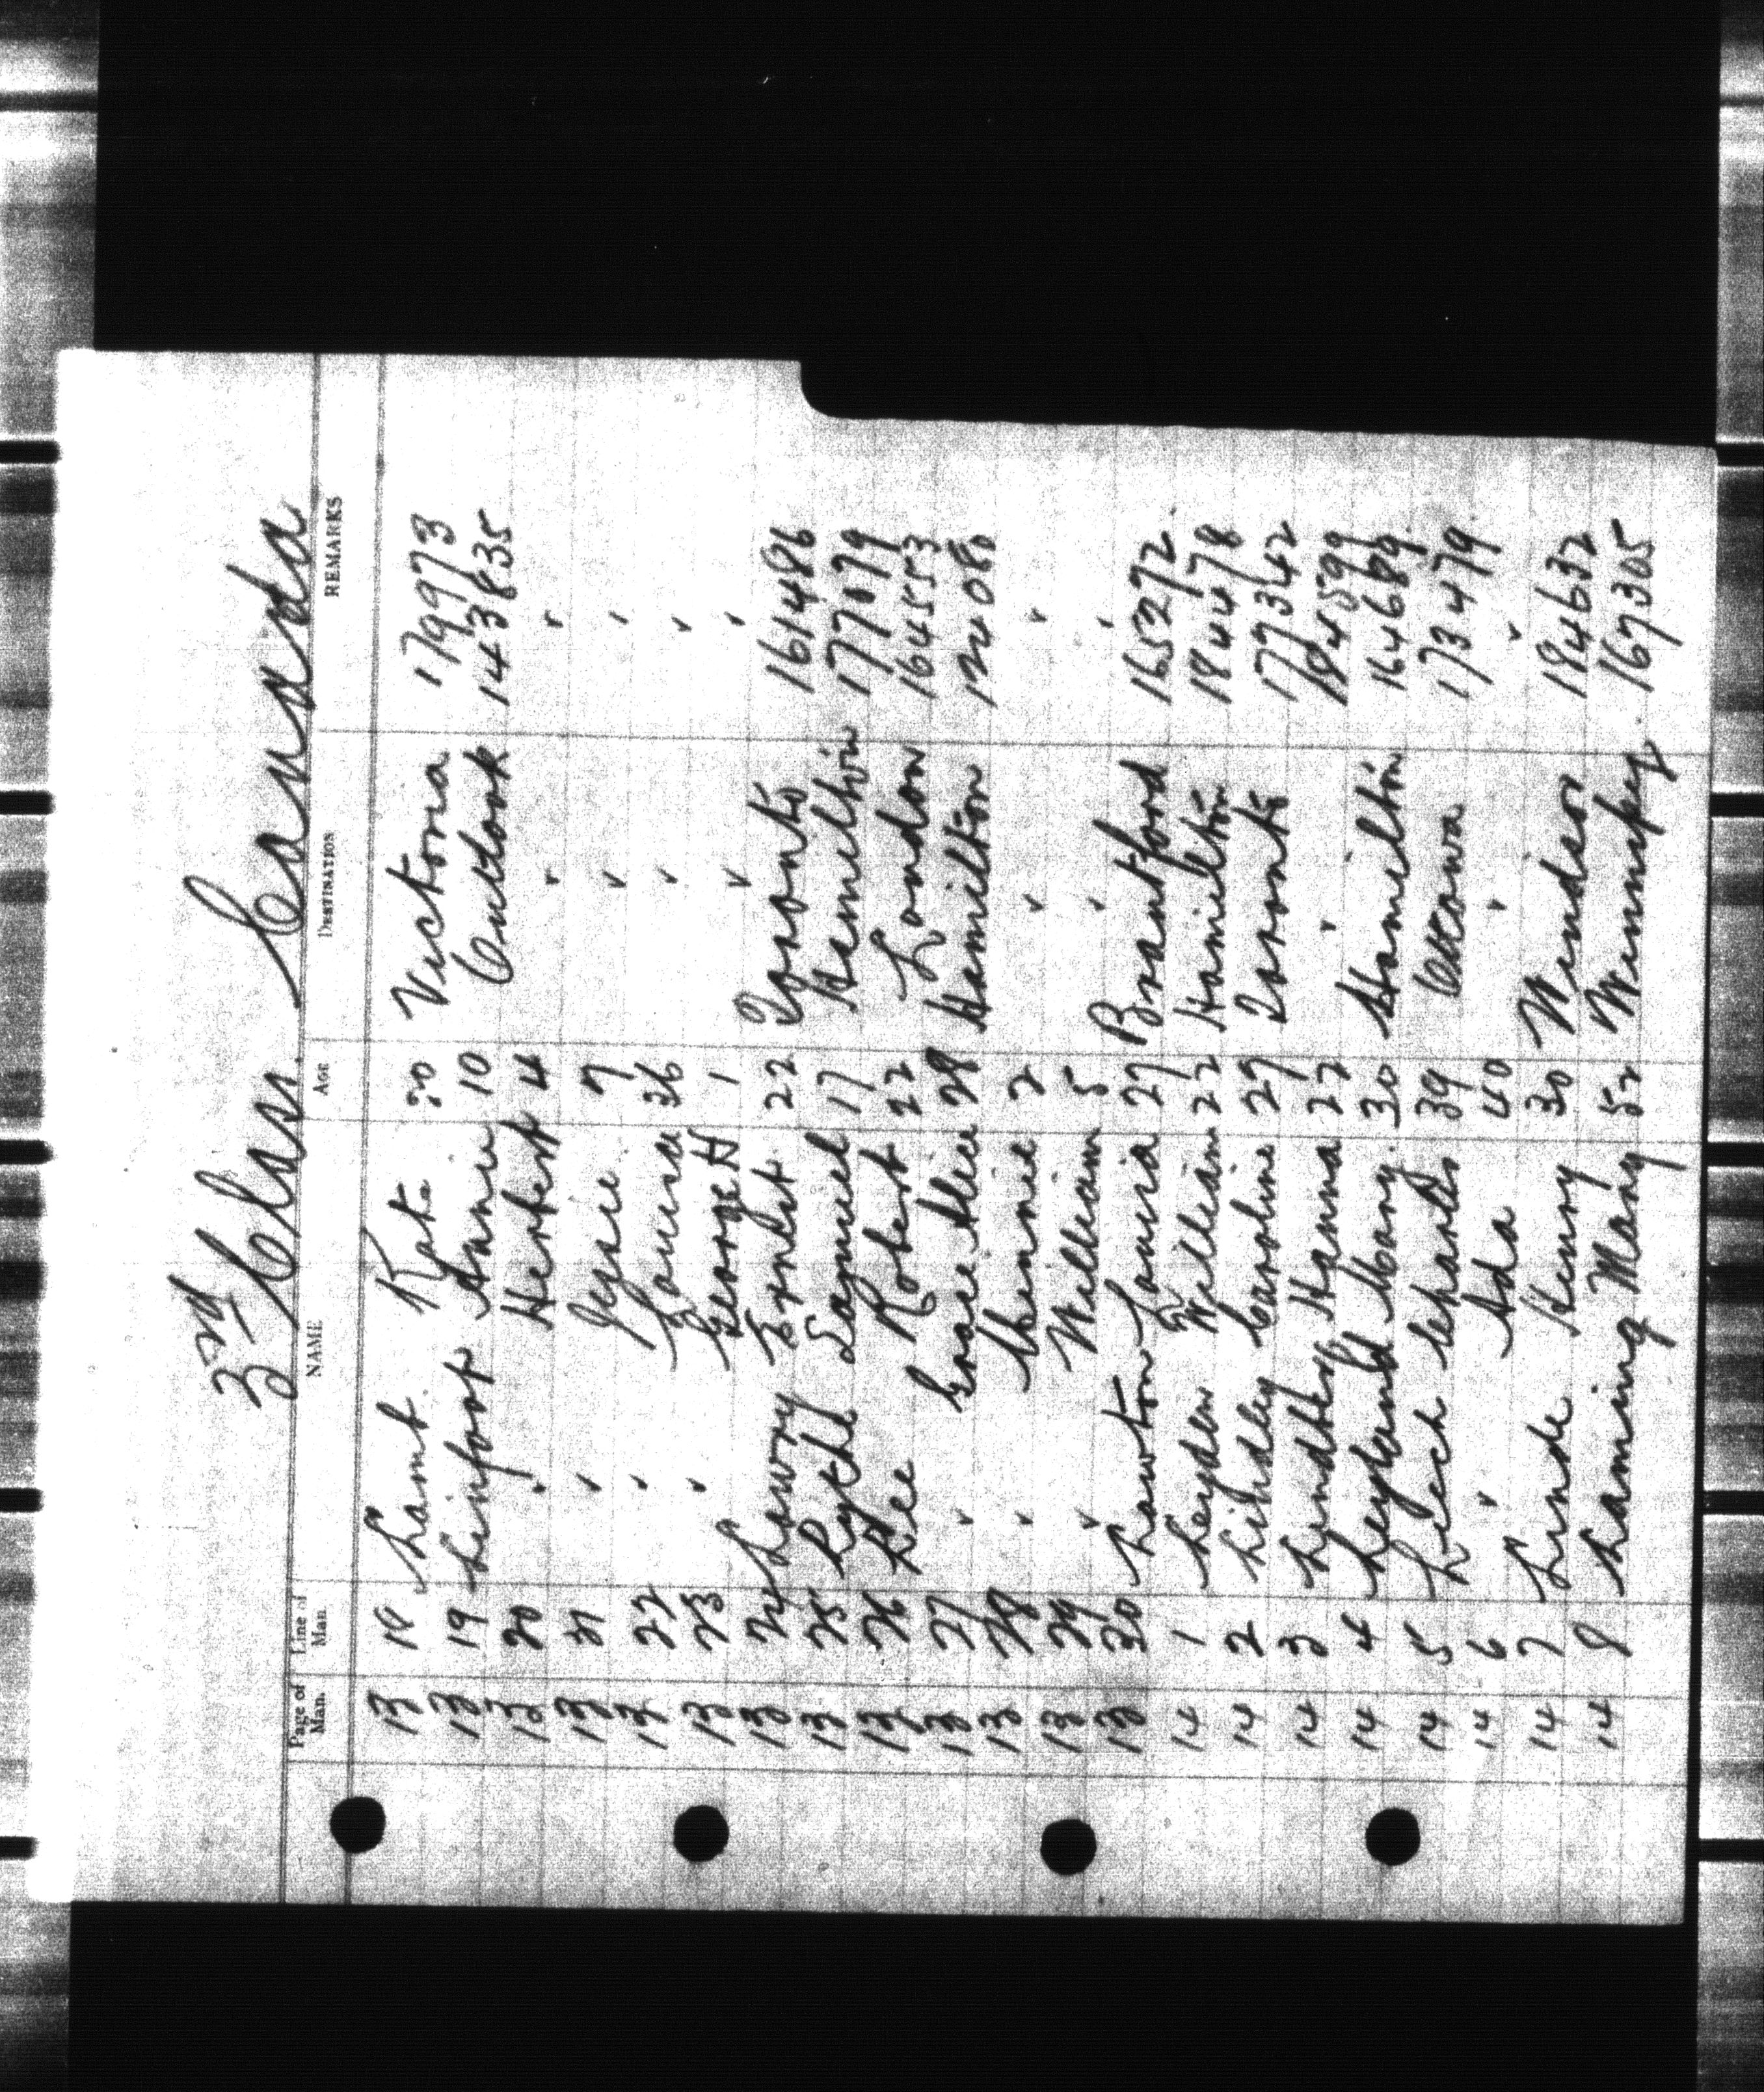 3rd Class. Canada
Page of Man. Line of Man. NAME AGE DESTINATION REMARKS
13 18 Lamb. Kate 30 Victoria 179973
13 19 Linfoot Annie 10 Outlook 143835
13 20 " Herbert 4 " "
13 21 " Jessie 7 " "
13 22 " Louisa 36 " "
13 23 " George H 1 " "
13 24 Lowry Ernest 22 Toronto 161486
13 25 Lythe Samuel 17 Hamilton 177079
13 26 Lee Robert 22 London 164553
13 27 " Grace Alice 28 Hamilton 124080
13 28 " Minnie 2 " "
13 29 " William 5 " "
13 30 Lawton Louisa 27 Brantford 165272
14 1 Leyden William 22 Hamilton 184478
14 2 Lihdley Caroline 27 Toronto 177342
14 3 Hanna 22 " 184599
14 4 Leyland Mary. 30 Hamilton 164689
14 5 Leech 39 Ottawa 173479
14 6 " Ada 40 " "
14 7 Linde Henry 30 Windsor 184632
14 8 Laming Mary 52 Winnipeg. 167305